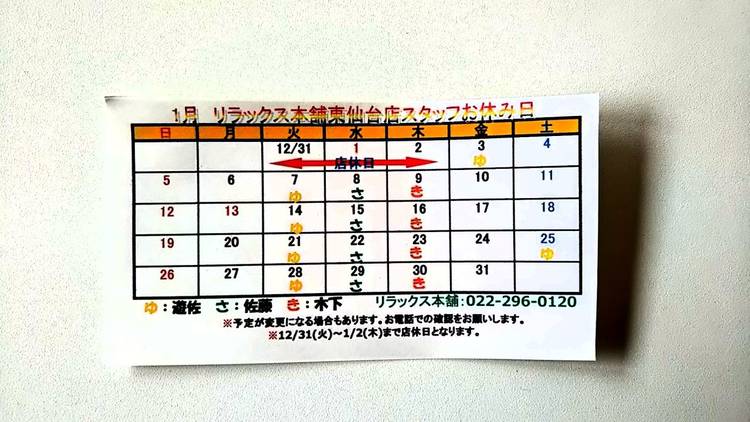 1月 リラックス本舗東仙台店スタッフお休み日
日 月 火 水 木 金 土
12/31 1 2 3 4
店休日 ゆ
5 6 7 8 9 10 11
ゆ さ き
12 13 14 15 16 17 18
ゆ さ き
19 20 21 22 23 24 25
ゆ さ き ゆ
26 27 28 29 30 31
ゆ さ き
ゆ:遊佐 さ:佐藤 き:木下 リラックス本舗:022-296-0120
※予定が変更になる場合もあります。お電話での確認をお願いします。
※12/31(火)~1/2(木)まで店休日となります。